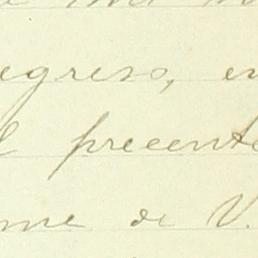 egreso, en
l precente
me de V.